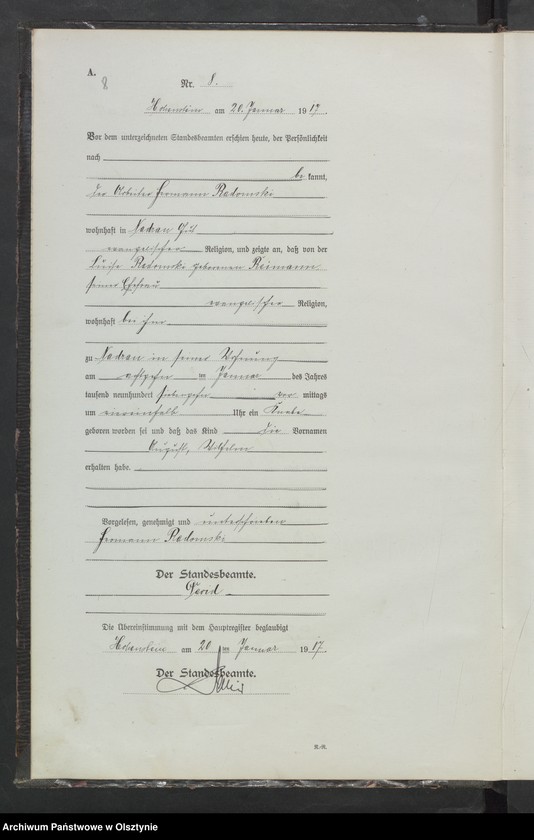 A.
8
Nr. 8.
Hohenstein am 20. Januar 1917.
Vor dem unterzeichneten Standesbeamten erschien heute, der Persönlichkeit
nach
be kannt,
der Arbeiter Hermann Radomski
wohnhaft in Nadrau Gut
evangelischer Religion, und zeigte an, daß von der
Luise Radomski geborenen Reimann
seiner Ehefrau
evangelischer Religion,
wohnhaft bei ihm
zu Nadrau in seiner Wohnung
am achtzehn ten Januar des Jahres
tausend neunhundert siebenzehn vor mittags
um Uhr ein Knabe
geboren worden sei und daß das Kind die Vornamen
August, Wilhelm
erhalten habe.
Vorgelesen, genehmigt und unterschrieben
Hermann Radomski
Der Standesbeamte.
Die Übereinstimmung mit dem Hauptregister beglaubigt
Hohenstein am 20 ten Januar 1917.
Der Standesbeamte.
R.-R.
Archiwum Państwowe w Olsztynie